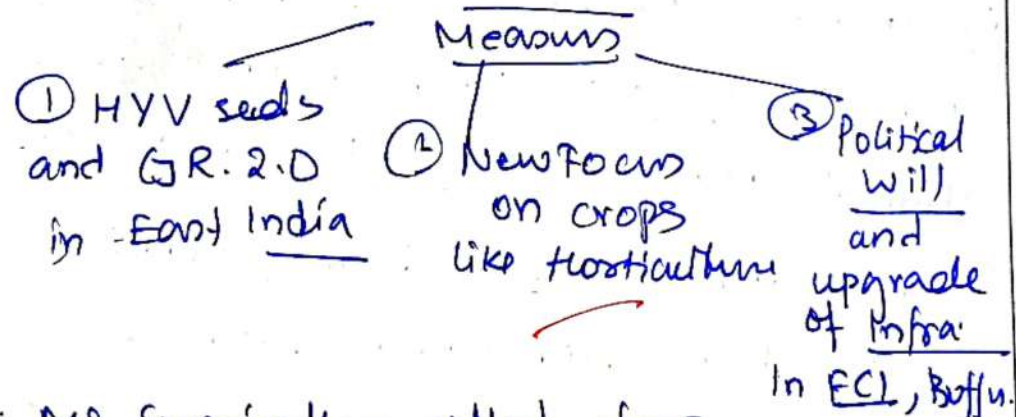 Measurs
① HYV seeds
and GR. 2.0
in East India
② New Focus
on crops
like Horticulture
③ Political
will
and
upgrade
of Infra.
In FCI, Buffn.